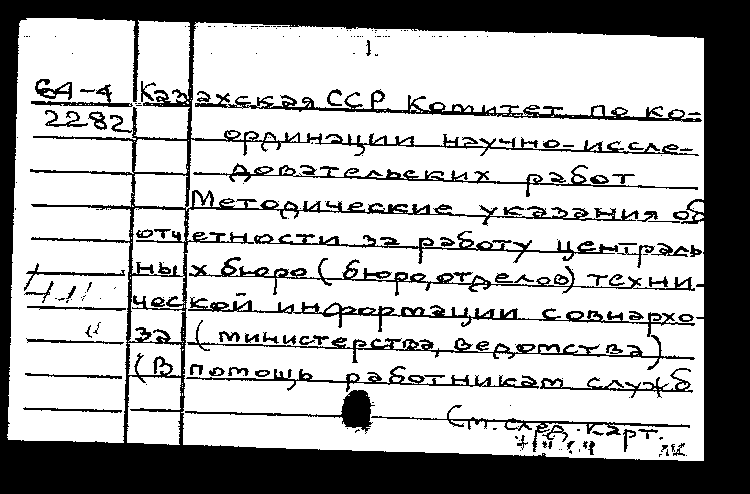 1.
64-4 Казахская ССР Комитет по ко-
2282 ординации научно-иссле-
довательских работ
Методические указания об
отчетности за работу централь
ных бюро (бюро, отделов) техни-
ческой информации совнархо-
за (министерства, ведомства)
(В помощь работникам служб
См. след. карт.